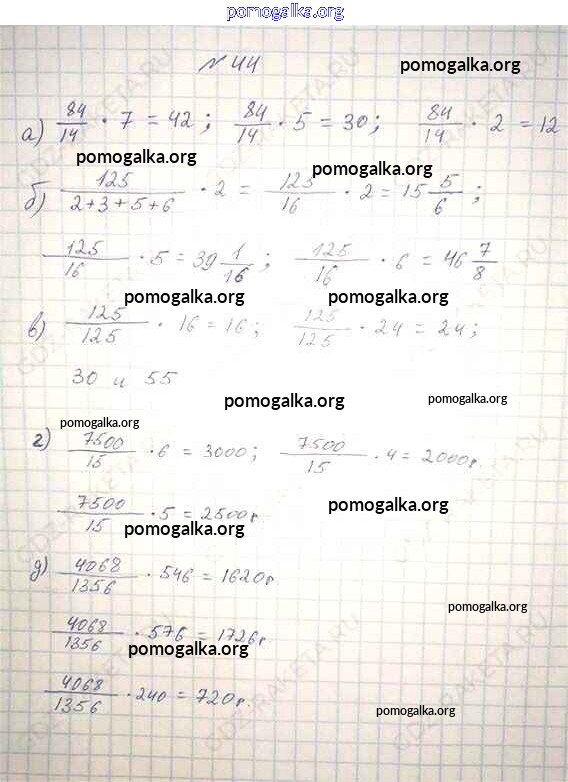 pomogalka.org
№ 44
pomogalka.org
а) 84/14 · 7 = 42; 84/14 · 5 = 30; 84/14 · 2 = 12
pomogalka.org pomogalka.org
б) 125/(2+3+5+6) · 2 = 125/16 · 2 = 15 5/6;
125/16 · 5 = 39 1/16; 125/16 · 6 = 46 7/8
pomogalka.org pomogalka.org
в) 125/125 · 16 = 16; 125/125 · 24 = 24;
30 и 55
pomogalka.org pomogalka.org
pomogalka.org
г) 7500/15 · 6 = 3000; 7500/15 · 4 = 2000г.
7500/15 · 5 = 2500г.
pomogalka.org
pomogalka.org
д) 4068/1356 · 546 = 1620г
pomogalka.org
4068/1356 · 576 = 1726г
pomogalka.org
4068/1356 · 240 = 720г.
pomogalka.org
GDZ-RAKETA.RU